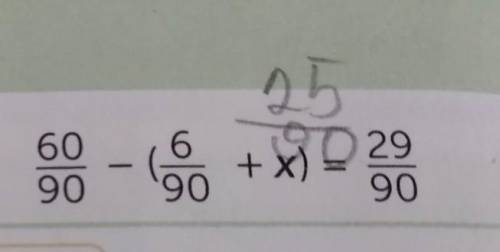 25/90
60/90 − (6/90 + x) = 29/90